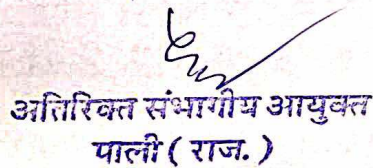 अतिरिक्त संभागीय आयुक्त
पाली ( राज. )